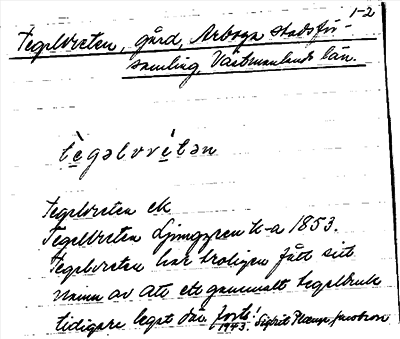 1-2
Tegelvreten, gård, Arboga stadsför-
samling, Västmanlands län.
tegəlvretən
Tegelvreten ek
Tegelvreten Ljunggren H-a 1853.
Tegelvreten har troligen fått sitt
namn av att ett gammalt tegelbruk
tidigare legat där förts!
1943. Sigrid Jacobson